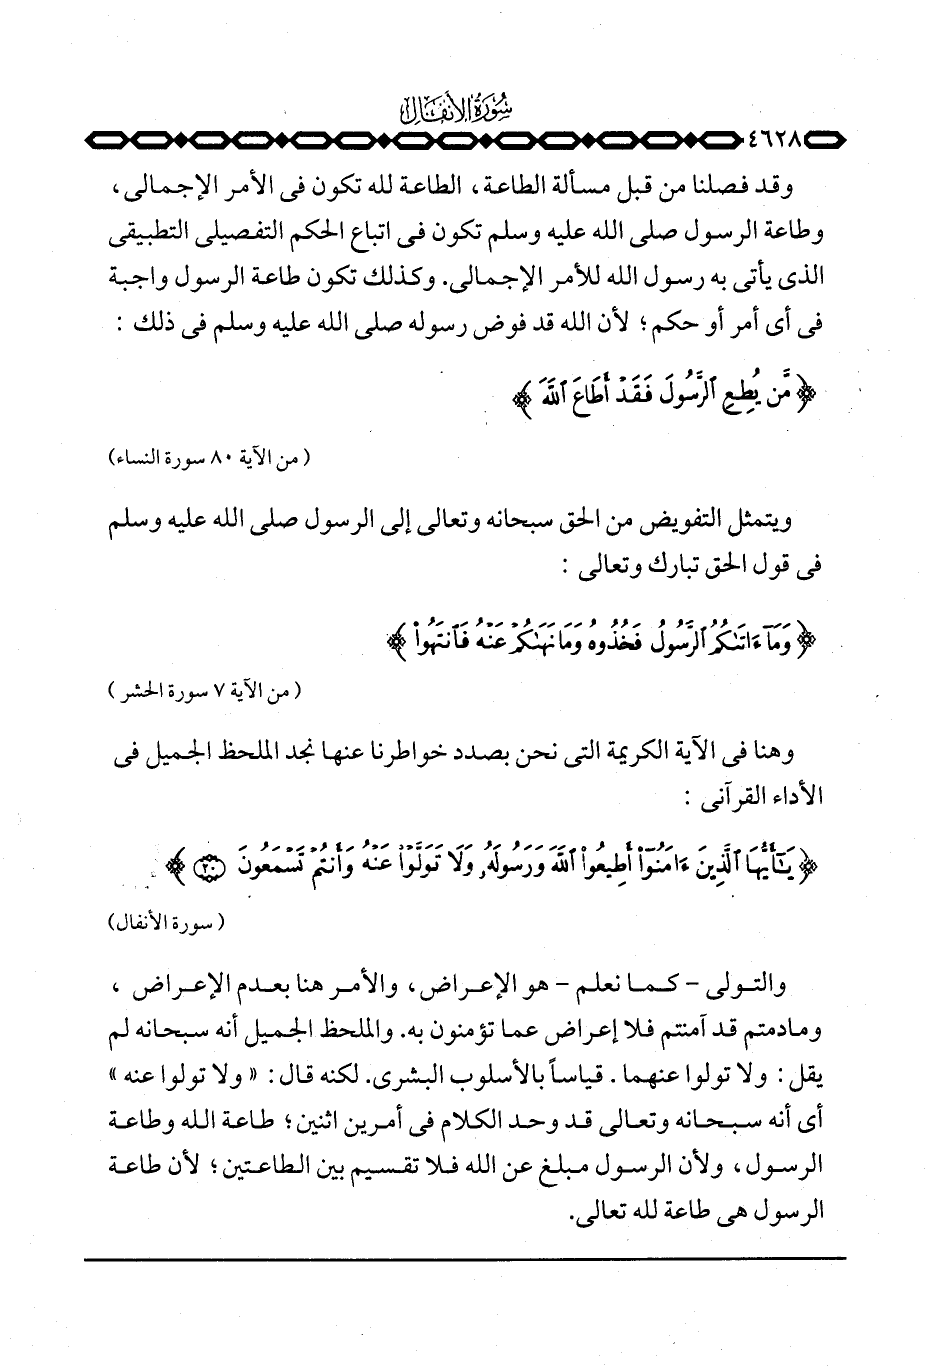 سورة الأنفال
٤٦٢٨
وقد فصلنا من قبل مسألة الطاعة، الطاعة لله تكون فى الأمر الإجمالى،
وطاعة الرسول صلى الله عليه وسلم تكون فى اتباع الحكم التفصيلى التطبيقى
الذى يأتى به رسول الله للأمر الإجمالى. وكذلك تكون طاعة الرسول واجبة
فى أى أمر أو حكم؛ لأن الله قد فوض رسوله صلى الله عليه وسلم فى ذلك :
﴿ مَّن يُطِعِ ٱلرَّسُولَ فَقَدۡ أَطَاعَ ٱللَّهَ ﴾
( من الآية ٨٠ سورة النساء)
ويتمثل التفويض من الحق سبحانه وتعالى إلى الرسول صلى الله عليه وسلم
فى قول الحق تبارك وتعالى :
﴿ وَمَآ ءَاتَىٰكُمُ ٱلرَّسُولُ فَخُذُوهُ وَمَا نَهَىٰكُمۡ عَنۡهُ فَٱنتَهُواْ ﴾
( من الآية ٧ سورة الحشر )
وهنا فى الآية الكريمة التى نحن بصدد خواطرنا عنها نجد الملحظ الجميل فى
الأداء القرآنى :
﴿ يَـٰٓأَيُّهَا ٱلَّذِينَ ءَامَنُوٓاْ أَطِيعُواْ ٱللَّهَ وَرَسُولَهُۥ وَلَا تَوَلَّوۡاْ عَنۡهُ وَأَنتُمۡ تَسۡمَعُونَ ٢٠ ﴾
( سورة الأنفال)
والتولى - كما نعلم - هو الإعراض، والأمر هنا بعدم الإعراض ،
ومادمتم قد آمنتم فلا إعراض عما تؤمنون به. والملحظ الجميل أنه سبحانه لم
يقل : ولا تولوا عنهما . قياساً بالأسلوب البشرى. لكنه قال : « ولا تولوا عنه »
أى أنه سبحانه وتعالى قد وحد الكلام فى أمرين اثنين؛ طاعة الله وطاعة
الرسول، ولأن الرسول مبلغ عن الله فلا تقسيم بين الطاعتين؛ لأن طاعة
الرسول هى طاعة لله تعالى.